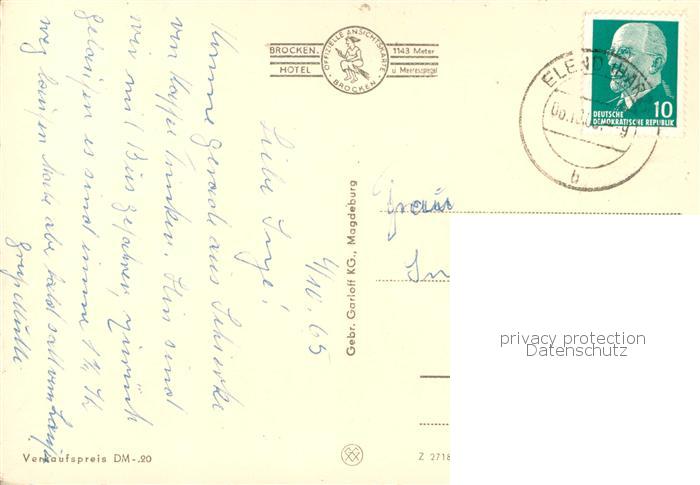 BROCKEN.
HOTEL
OFFIZIELLE ANSICHTSKARTE
BROCKEN
1143 Meter
ü Meeresspiegel
ELEND (HARZ)
b
10
DEUTSCHE
DEMOKRATISCHE REPUBLIK
4/10.65
Liebe Inge!
Komme gerade aus Schierke
von Kaffee trinken. Hin sind
wir mit Bus gefahren, zurück
gelaufen es sind immer 1 ½ St
weg laufen
Gruß Mutti
Gebr. Garloff KG., Magdeburg
Frau
In
Verkaufspreis DM -.20
Z 2718
privacy protection
Datenschutz